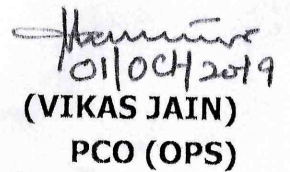 01/Oct/2019
(VIKAS JAIN)
PCO (OPS)